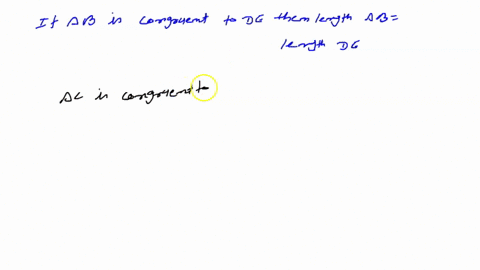 If AB is congruent to DG then length AB =
length DG
AC is congruent to